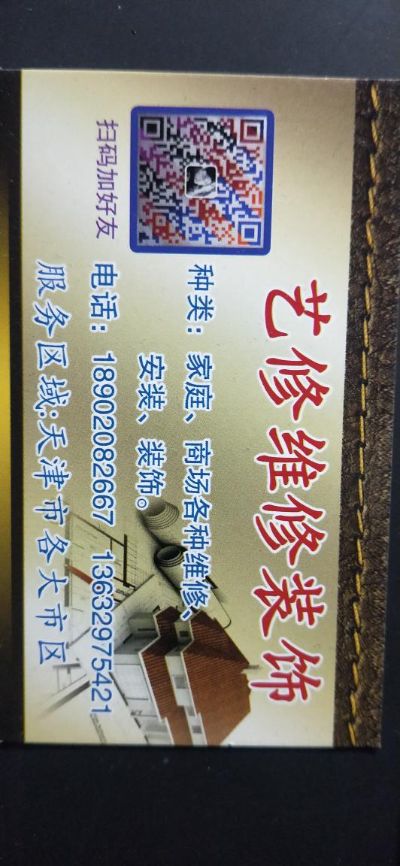 艺修维修装饰
种类：家庭、商场各种维修、
安装、装饰。
电话：18902082667 13632975421
服务区域:天津市各大市区
扫码加好友